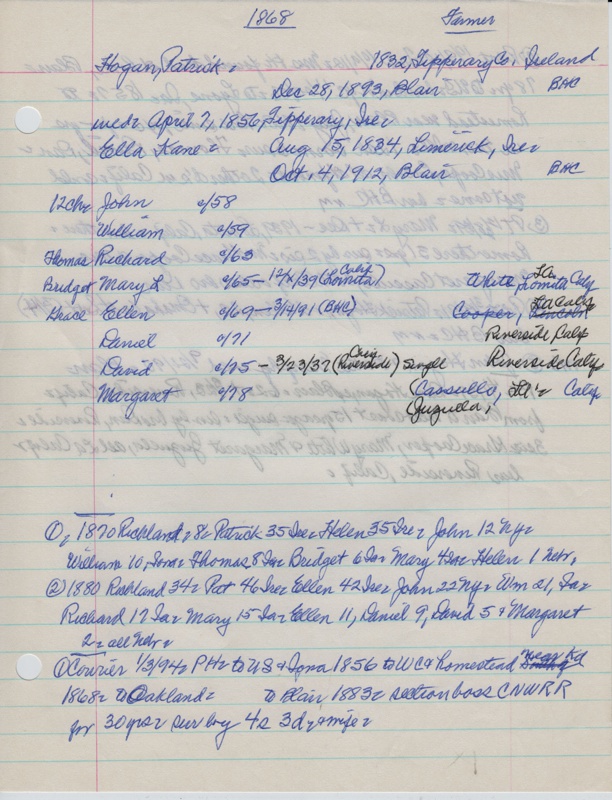 1868 Farmer
Hogan, Patrick 1832, Tipperary Co. Ireland
Dec 28, 1893, Blair BHC
wed. April 7, 1856, Tipperary, Ire
Ella Kane Aug 15, 1834, Limerick, Ire
Oct. 4, 1912, Blair BHC
12ch John c/58
William c/59
Thomas Richard c/63
Bridget Mary L c/65 - 12/X/39 (Lomita) Calif White, LA Lomita Calif
Grace Ellen c/69 - 3/14/91 (BHC) Cooper, LA Calif
Daniel c/71 Riverside, Calif
David c/75 - 3/23/37 (Riverside) Single Riverside Calif
Margaret c/78 (Cassullo, LA Calif
Guguella,
① 1870 Richland 8 Patrick 35 Ire Helen 35 Ire John 12 Ny
William 10, Iowa Thomas 8 Ia Bridget 6 Ia Mary 4 Ia Helen 1 Nebr,
② 1880 Richland 34 Pat 46 Ire Ellen 42 Ire John 22 Ny Wm 21, Ia
Richard 17 Ia Mary 15 Ia Ellen 11, Daniel 9, David 5 + Margaret
2 all Nebr
① Courier 1/3/94 PH to US + Iowa 1856 to WC + homestead near Kd
1868 to Oakland to Blair 1883 section boss CNWRR
for 30 yrs surv by 4s 3d + wife